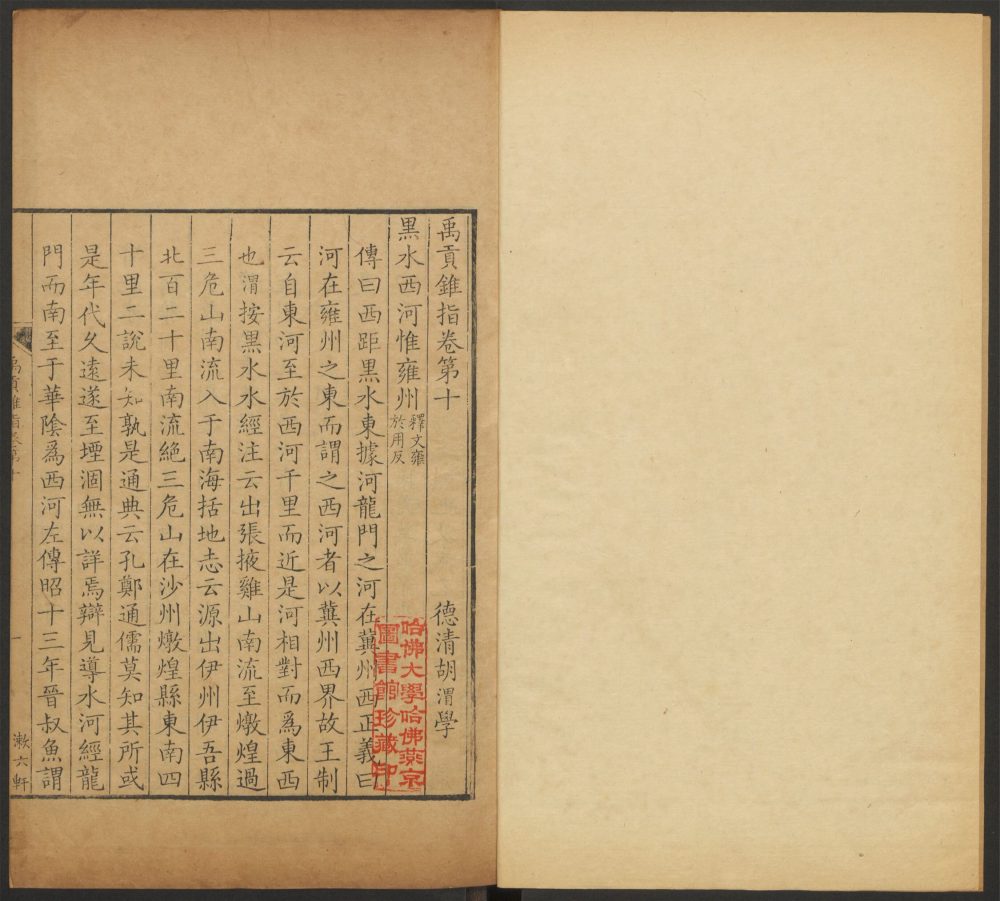 禹貢錐指卷第十
德清胡渭學
黑水西河惟雍州釋文雍
於用反
傳曰西距黑水東據河龍門之河在冀州西正義曰
河在雍州之東而謂之西河者以冀州西界故王制
云自東河至於西河千里而近是河相對而爲東西
也渭按黑水水經注云出張掖雞山南流至燉煌過
三危山南流入于南海括地志云源出伊州伊吾縣
北百二十里南流絶三危山在沙州燉煌縣東南四
十里二說未知孰是通典云孔鄭通儒莫知其所或
是年代久遠遂至堙涸無以詳焉辯見導水河經龍
門而南至于華陰爲西河左傳昭十三年晉叔魚謂
禹貢錐指卷第十
一
漱六軒
哈佛大學哈佛燕京
圖書館珍藏印